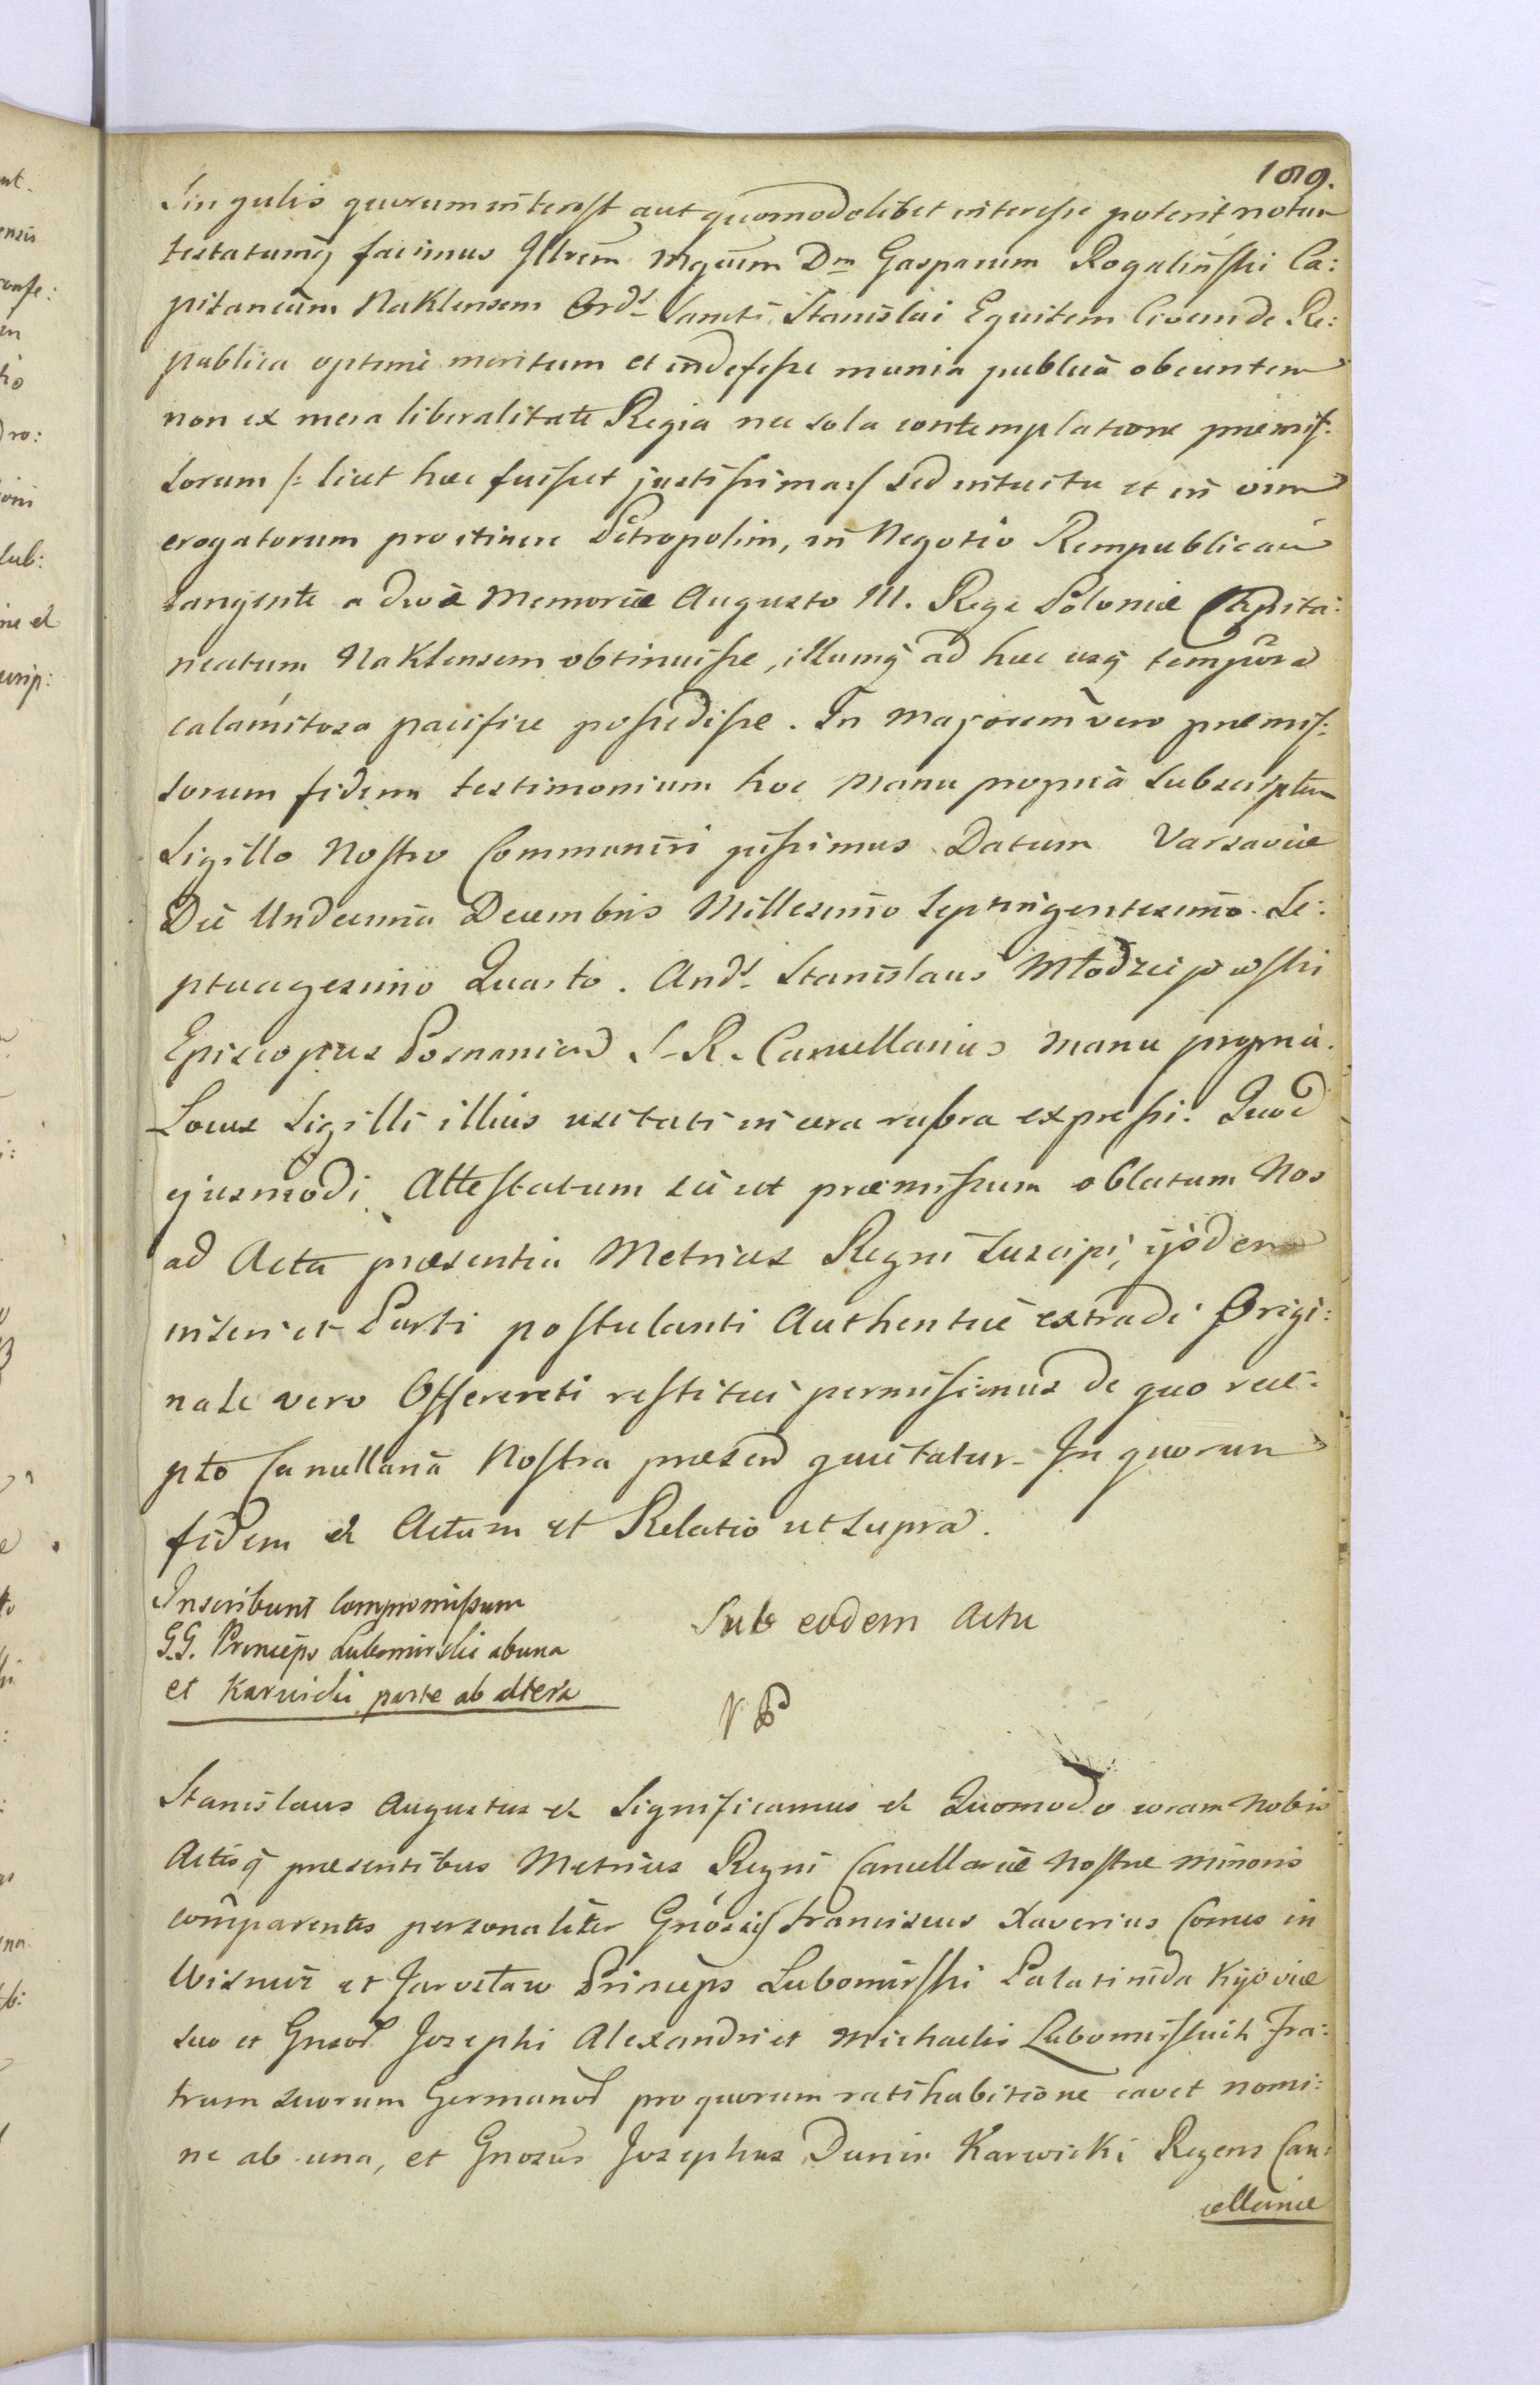 189.
Singulis quorum interest aut quomodolibet interesse poterit notum
testatumq facimus Illrem Mgcum Dnm Gasparum Rogaliński Ca:
pitaneum Naklensem Ords Sancti Stanislai Equitem Civem de Re:
publica optime meritum et indefesse munia publica obeuntem
non ex mera liberalitate Regia nec sola contemplatione præmis:
sorum /: licet hæc fuisset justissima :/ sed intuitu et in vim
erogatorum pro itinere Petropolim, in Negotio Rempublicam
tangente a divæ Memoriæ Augusto III. Rege Poloniæ Capita:
neatum Naklensem obtinuisse, illumq ad hæc usq tempora
calamitosa pacifice possedisse. In majorem vero præmis:
sorum fidem testimonium hoc manu propria subscriptum
Sigillo Nostro Communiri jussimus Datum Varsaviæ
Die Undecima Decembris Millesimo Septingentesimo Se:
ptuagesimo Quarto. Ands Stanislaus Młodziejowski
Episcopus Posnanien S. R. Cancellarius manu propria.
Locus Sigilli illius usitati in cera rubra expressi. Quod
ejusmodi Attestatum sic ut præmissum oblatum Nos
ad Acta præsentia Metrices Regni suscipi, ijsdem
inseri et Parti postulanti Authentice extradi Origi:
nale vero Offerenti restitui permisimus de quo rece:
pto Cancellaria Nostra præsen quietatur. In quorum
fidem et Actum et Relatio ut supra.
Inscribunt Compromissum
G.G. Princeps Lubomirski ab una
et Karwicki parte ab altera
Sub eodem Actu
Stanislaus Augustus et Significamus et Quomodo coram Nobis
Actisq præsentibus Metrices Regni Cancellariæ Nostræ minoris
comparentes personaliter Gnosus Franciscus Xaverius Comes in
Wisnicz et Jarosław Princeps Lubomirski Palatinida Kijoviæ
suo et Gnsor Josephi Alexandri et Michaelis Lubomirskich Fra:
trum suorum Germanor pro quorum ratihabitione cavet nomi:
ne ab una, et Gnosus Josephus Dunin Karwicki Regens Can:
cellariæ